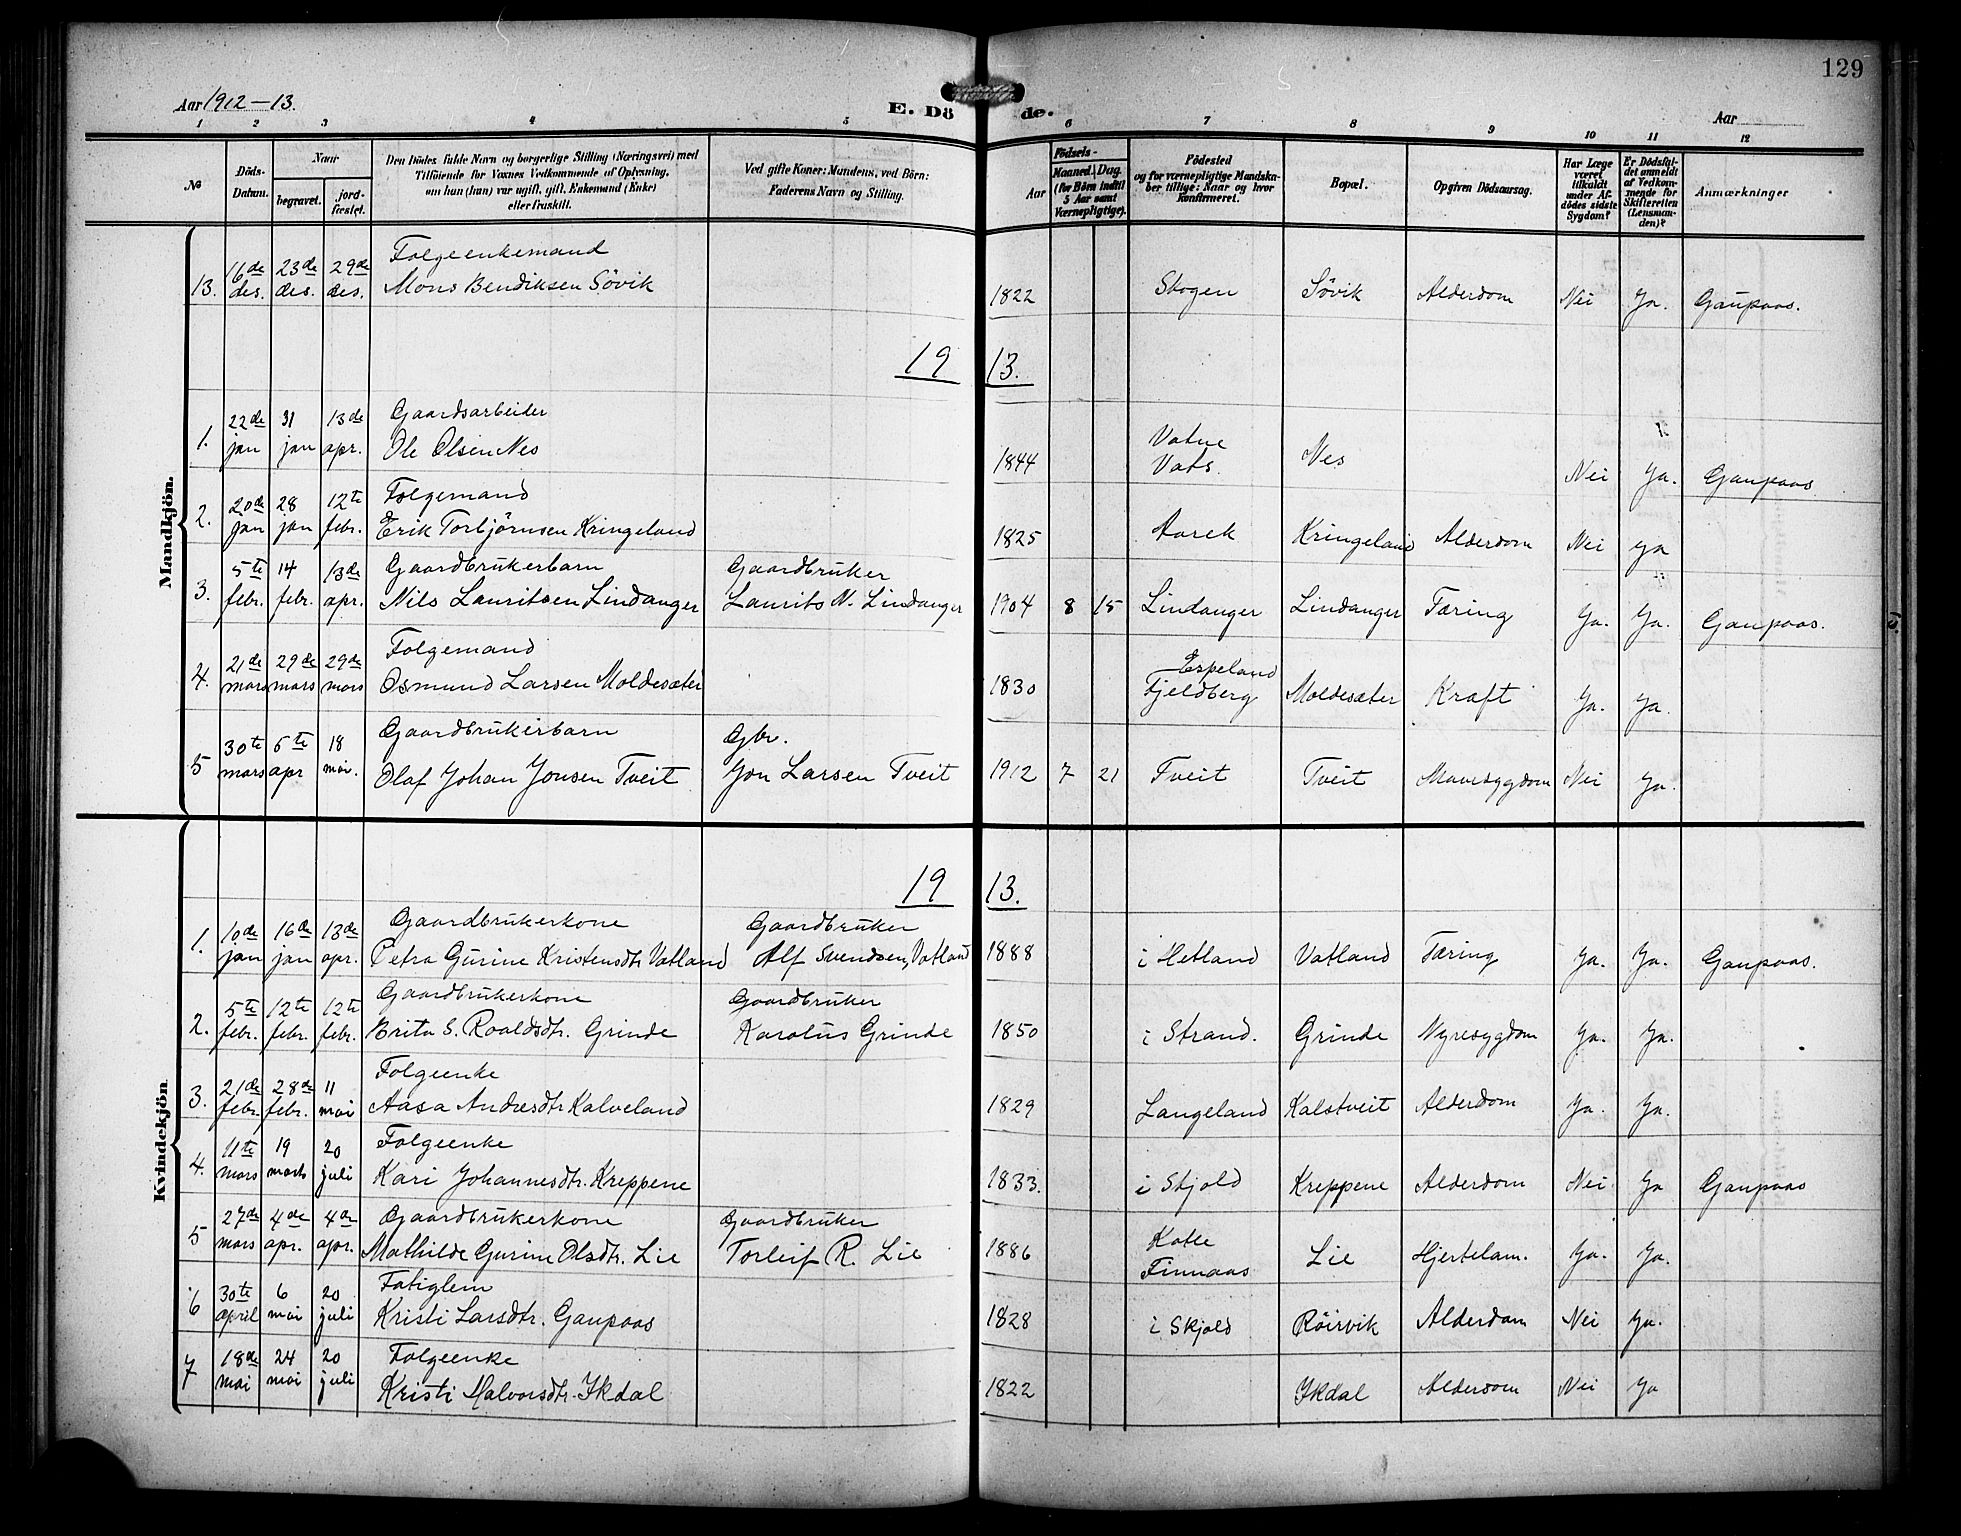 129
Aar 1912-13.
E. Döde.
Aar
1 2 3 4 5 6 7 8 9 10 11 12
No
Döds-Datum.
Naar
begravet.
jord-fæstet.
Den Dödes fulde Navn og borgerlige Stilling (Næringsvei) med
Tilföiende for Voxnes Vedkommende af Oplysning,
om hun (han) var ugift, gift, Enkemand (Enke)
eller fraskilt.
Ved gifte Koner: Mandens, ved Börn:
Faderens Navn og Stilling.
Födsels-
Aar
Maaned. Dag.
(for Börn indtil
5 Aar samt
Værnepligtige).
Födested
og for værnepligtige Mandska-
ber tillige: Naar og hvor
konfirmeret.
Bopæl.
Opgiven Dödsaarsag.
Har Læge
været
tilkaldt
under Af-
dödes sidste
Sygdom?
Er Dödsfal-
det anmeldt
af Vedkom-
mende for
Skifteretten
(Lensman-
den)?
Anmærkninger
Mandkjön.
13. 16de des. 23de des. 29de des. Folgeenkemand
Mons Bendiksen Sövik 1822 Skogen Sövik Alderdom Nei Ja. Gaupaas.
1913.
1. 22de jan 31 jan 13de apr. Gaardsarbeider
Ole Olsen Nes 1844 Vatne Vats. Nes Nei Ja. Gaupaas
2. 20de jan 28 jan 12te febr. Folgemand
Erik Torbjörnsen Kringeland 1825 Aarek Kringeland Alderdom Nei ja
3. 5te febr. 14 febr. 13de apr. Gaardbrukerbarn Gaardbruker
Nils Lauritsen Lindanger Laurits N. Lindanger 1904 8 15 Lindanger Lindanger Tæring Ja. Ja. Gaupaas.
4. 21de mars 29de mars 29de mars Folgemand
Osmund Larsen Moldesæter 1830 Espeland Fjeldberg Moldesæter Kræft Ja. Ja.
5 30te mars 6te apr 18 mai. Gaardbrukerbarn Gbr.
Olaf Johan Jonsen Tveit Jon Larsen Tveit 1912 7 21 Tveit Tveit Mavesygdom Nei Ja.
Kvindekjön
1913.
1. 10de jan 16de jan 13de apr. Gaardbrukerkone Gaardbruker
Petra Gurine Kristensdtr Vatland Alf Svendsen, Vatland 1888 i Hetland Vatland Tæring Ja. Ja. Gaupaas.
2. 5te febr. 12te febr. 12te febr. Gaardbrukerkone Gaardbruker
Brita S. Roaldsdtr. Grinde Karolus Grinde 1850 i Strand. Grinde Nyresygdom Ja. Ja.
3. 21de febr. 28de febr. 11 mai Folgeenke
Aasa Andrsdtr Kalveland 1829 Langeland Kalstveit Alderdom Ja. Ja.
4. 11te mars 19 mars 20 juli Folgeenke
Kari Johannesdtr. Kreppene 1833. i Skjold Kreppene Alderdom Nei Ja Gaupaas
5 27de mars 4de apr. 4de apr. Gaardbrukerkone Gaardbruker
Mathilde Gurine Olsdtr. Lie Torleif R. Lie 1886 Katle Finnaas Lie Hjertelam. Ja. Ja.
6 30te april 6 mai 20 juli Fatiglem
Kristi Larsdtr. Gaupaas 1828 i Skjold Röirvik Alderdom Nei Ja.
7 18de mai 24 mai 20 juli Folgeenke
Kristi Halvorsdtr. Ikdal 1822 Ikdal Alderdom Nei Ja